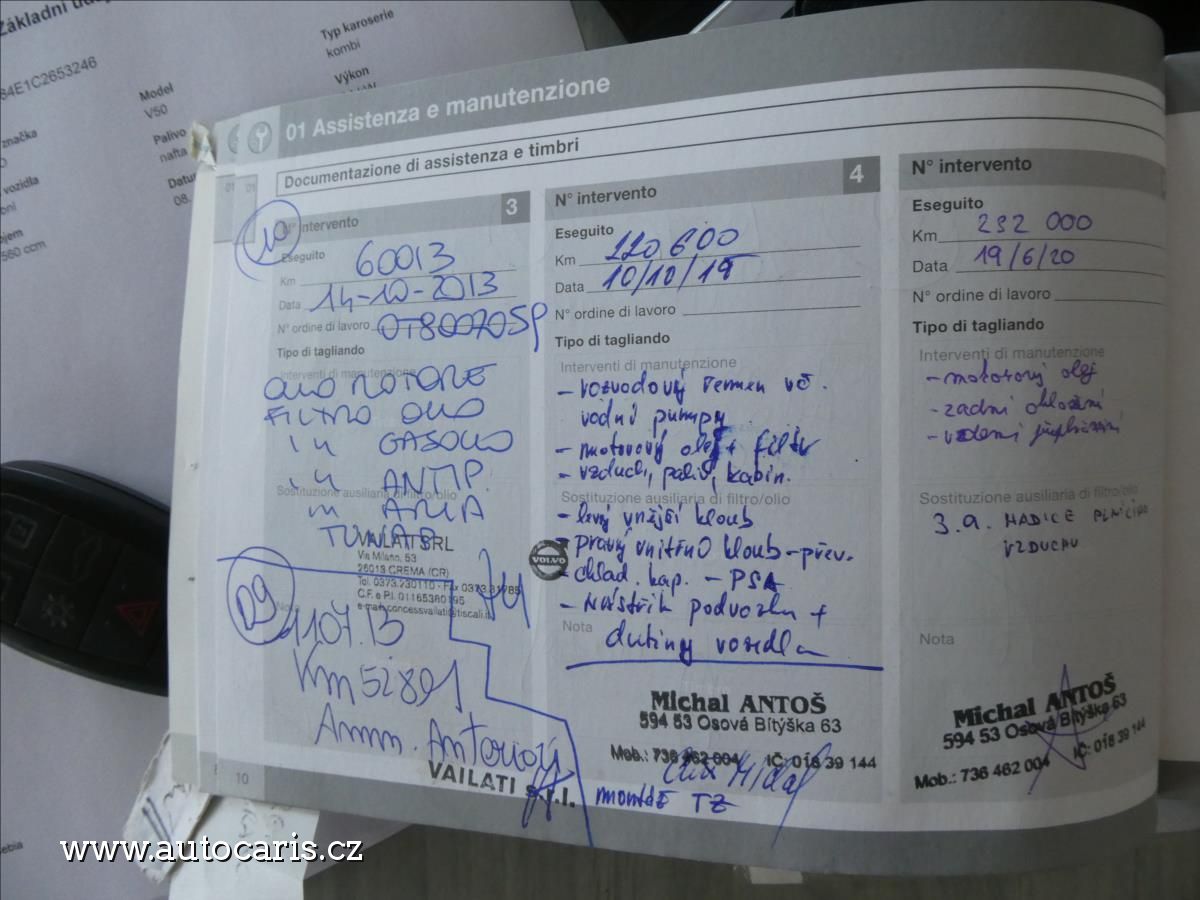 Základní úda
84E1C2653246
Typ karoserie
kombi
Model
V50
Výkon
značka
Palivo
nafta
vozidla
Datu
08.
jem
560 ccm
01 Assistenza e manutenzione
Documentazione di assistenza e timbri
10
N° intervento 3
Eseguito
Km 60013
Data 14-10-2013
N° ordine di lavoro OT800705P
Tipo di tagliando
Interventi di manutenzione
OLIO MOTORE
FILTRO OLIO
GASOLIO
ANTIP.
ARIA
Sostituzione ausiliaria di filtro/olio
VAILATI SRL
Via Milano, 53
26013 CREMA (CR)
Tel. 0373.230110 - Fax 0373.31785
e-mail: concessvailati@tiscali.it
Nota
D9
1107.13
Km 52891
VAILATI s.r.l.
10
N° intervento 4
Eseguito
Km 120 600
Data 10/10/15
N° ordine di lavoro
Tipo di tagliando
Interventi di manutenzione
- rozvodový řemen vč.
vodní pumpy
- motorový olej + filtr
- vzduch, paliv, kabin.
Sostituzione ausiliaria di filtro/olio
- levý vnější kloub
- pravý vnitřní kloub - přev.
VOLVO
- chlad. kap. - PSA
- Nástřik podvozku +
Nota
dutiny vozidla
Michal ANTOŠ
594 53 Osová Bítýška 63
Mob.: 736 462 004 IČ: 018 39 144
montáž TZ
N° intervento
Eseguito
Km 232 000
Data 19/6/20
N° ordine di lavoro
Tipo di tagliando
Interventi di manutenzione
- motorový olej
- zadní obložení
Sostituzione ausiliaria di filtro/olio
3.a. HADICE PLNÍCÍHO
VZDUCHU
Nota
Michal ANTOŠ
594 53 Osová Bítýška 63
Mob.: 736 462 004 IČ: 018 39 144
www.autocaris.cz